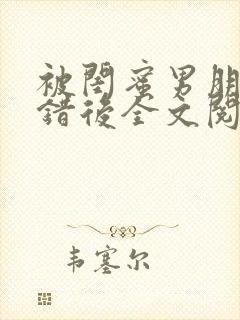 被閨蜜男朋
錯後全文閱
韦塞尔